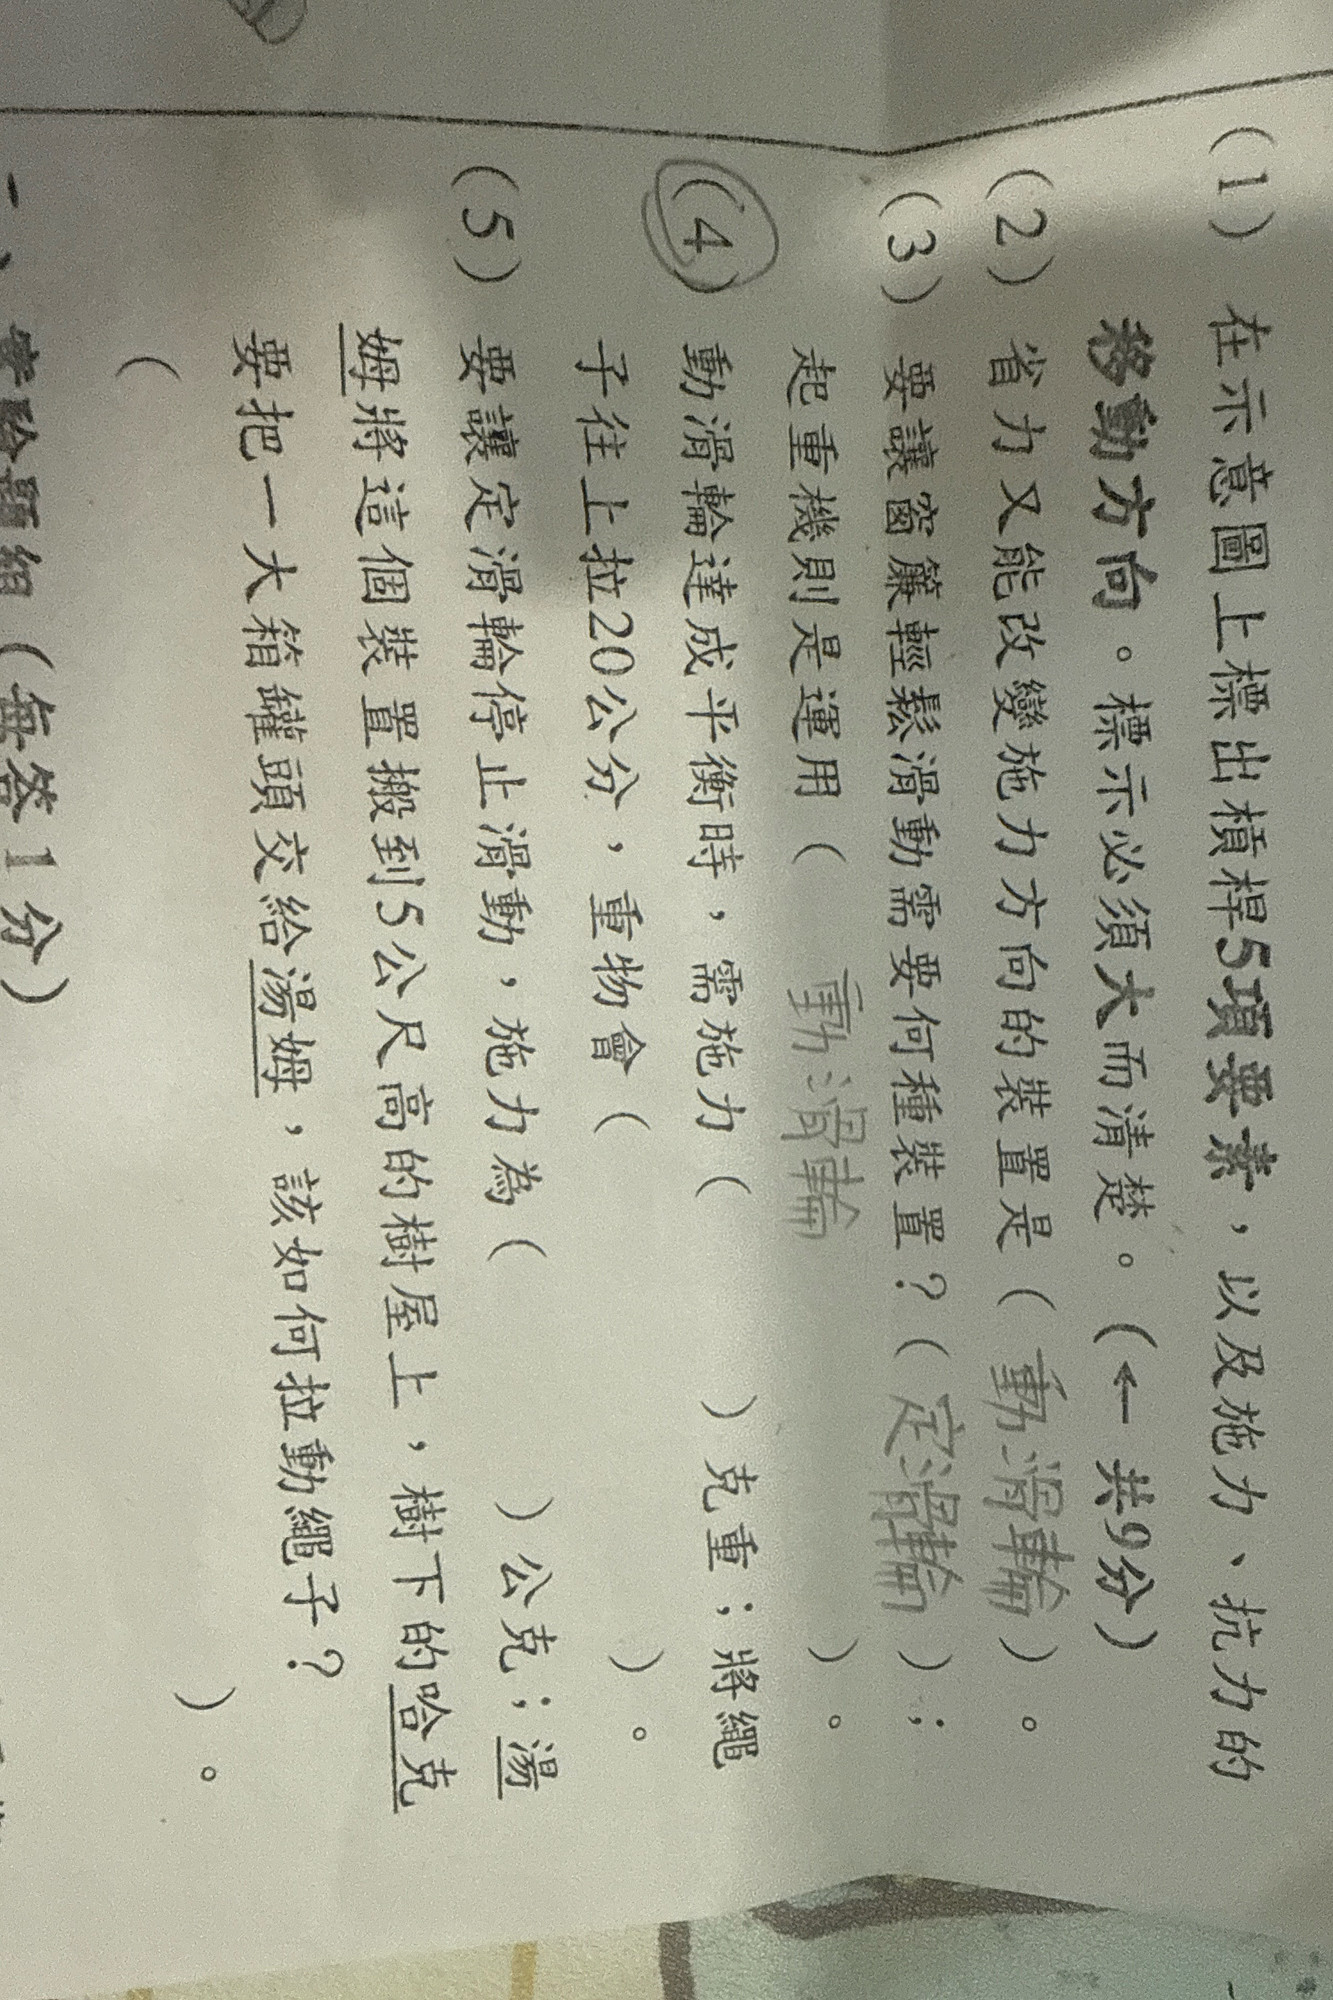 (1) 在示意圖上標出槓桿5項要素，以及施力、抗力的
移動方向。標示必須大而清楚。(← 共9分)
(2) 省力又能改變施力方向的裝置是( 動滑輪 )。
(3) 要讓窗簾輕鬆滑動需要何種裝置?( 定滑輪 )；
起重機則是運用( 動滑輪 )。
(4) 動滑輪達成平衡時，需施力( )克重；將繩
子往上拉20公分，重物會( )。
(5) 要讓定滑輪停止滑動，施力為( )公克；湯
姆將這個裝置搬到5公尺高的樹屋上，樹下的哈克
要把一大箱罐頭交給湯姆，該如何拉動繩子?
( )。
、實驗題組(每答1分)